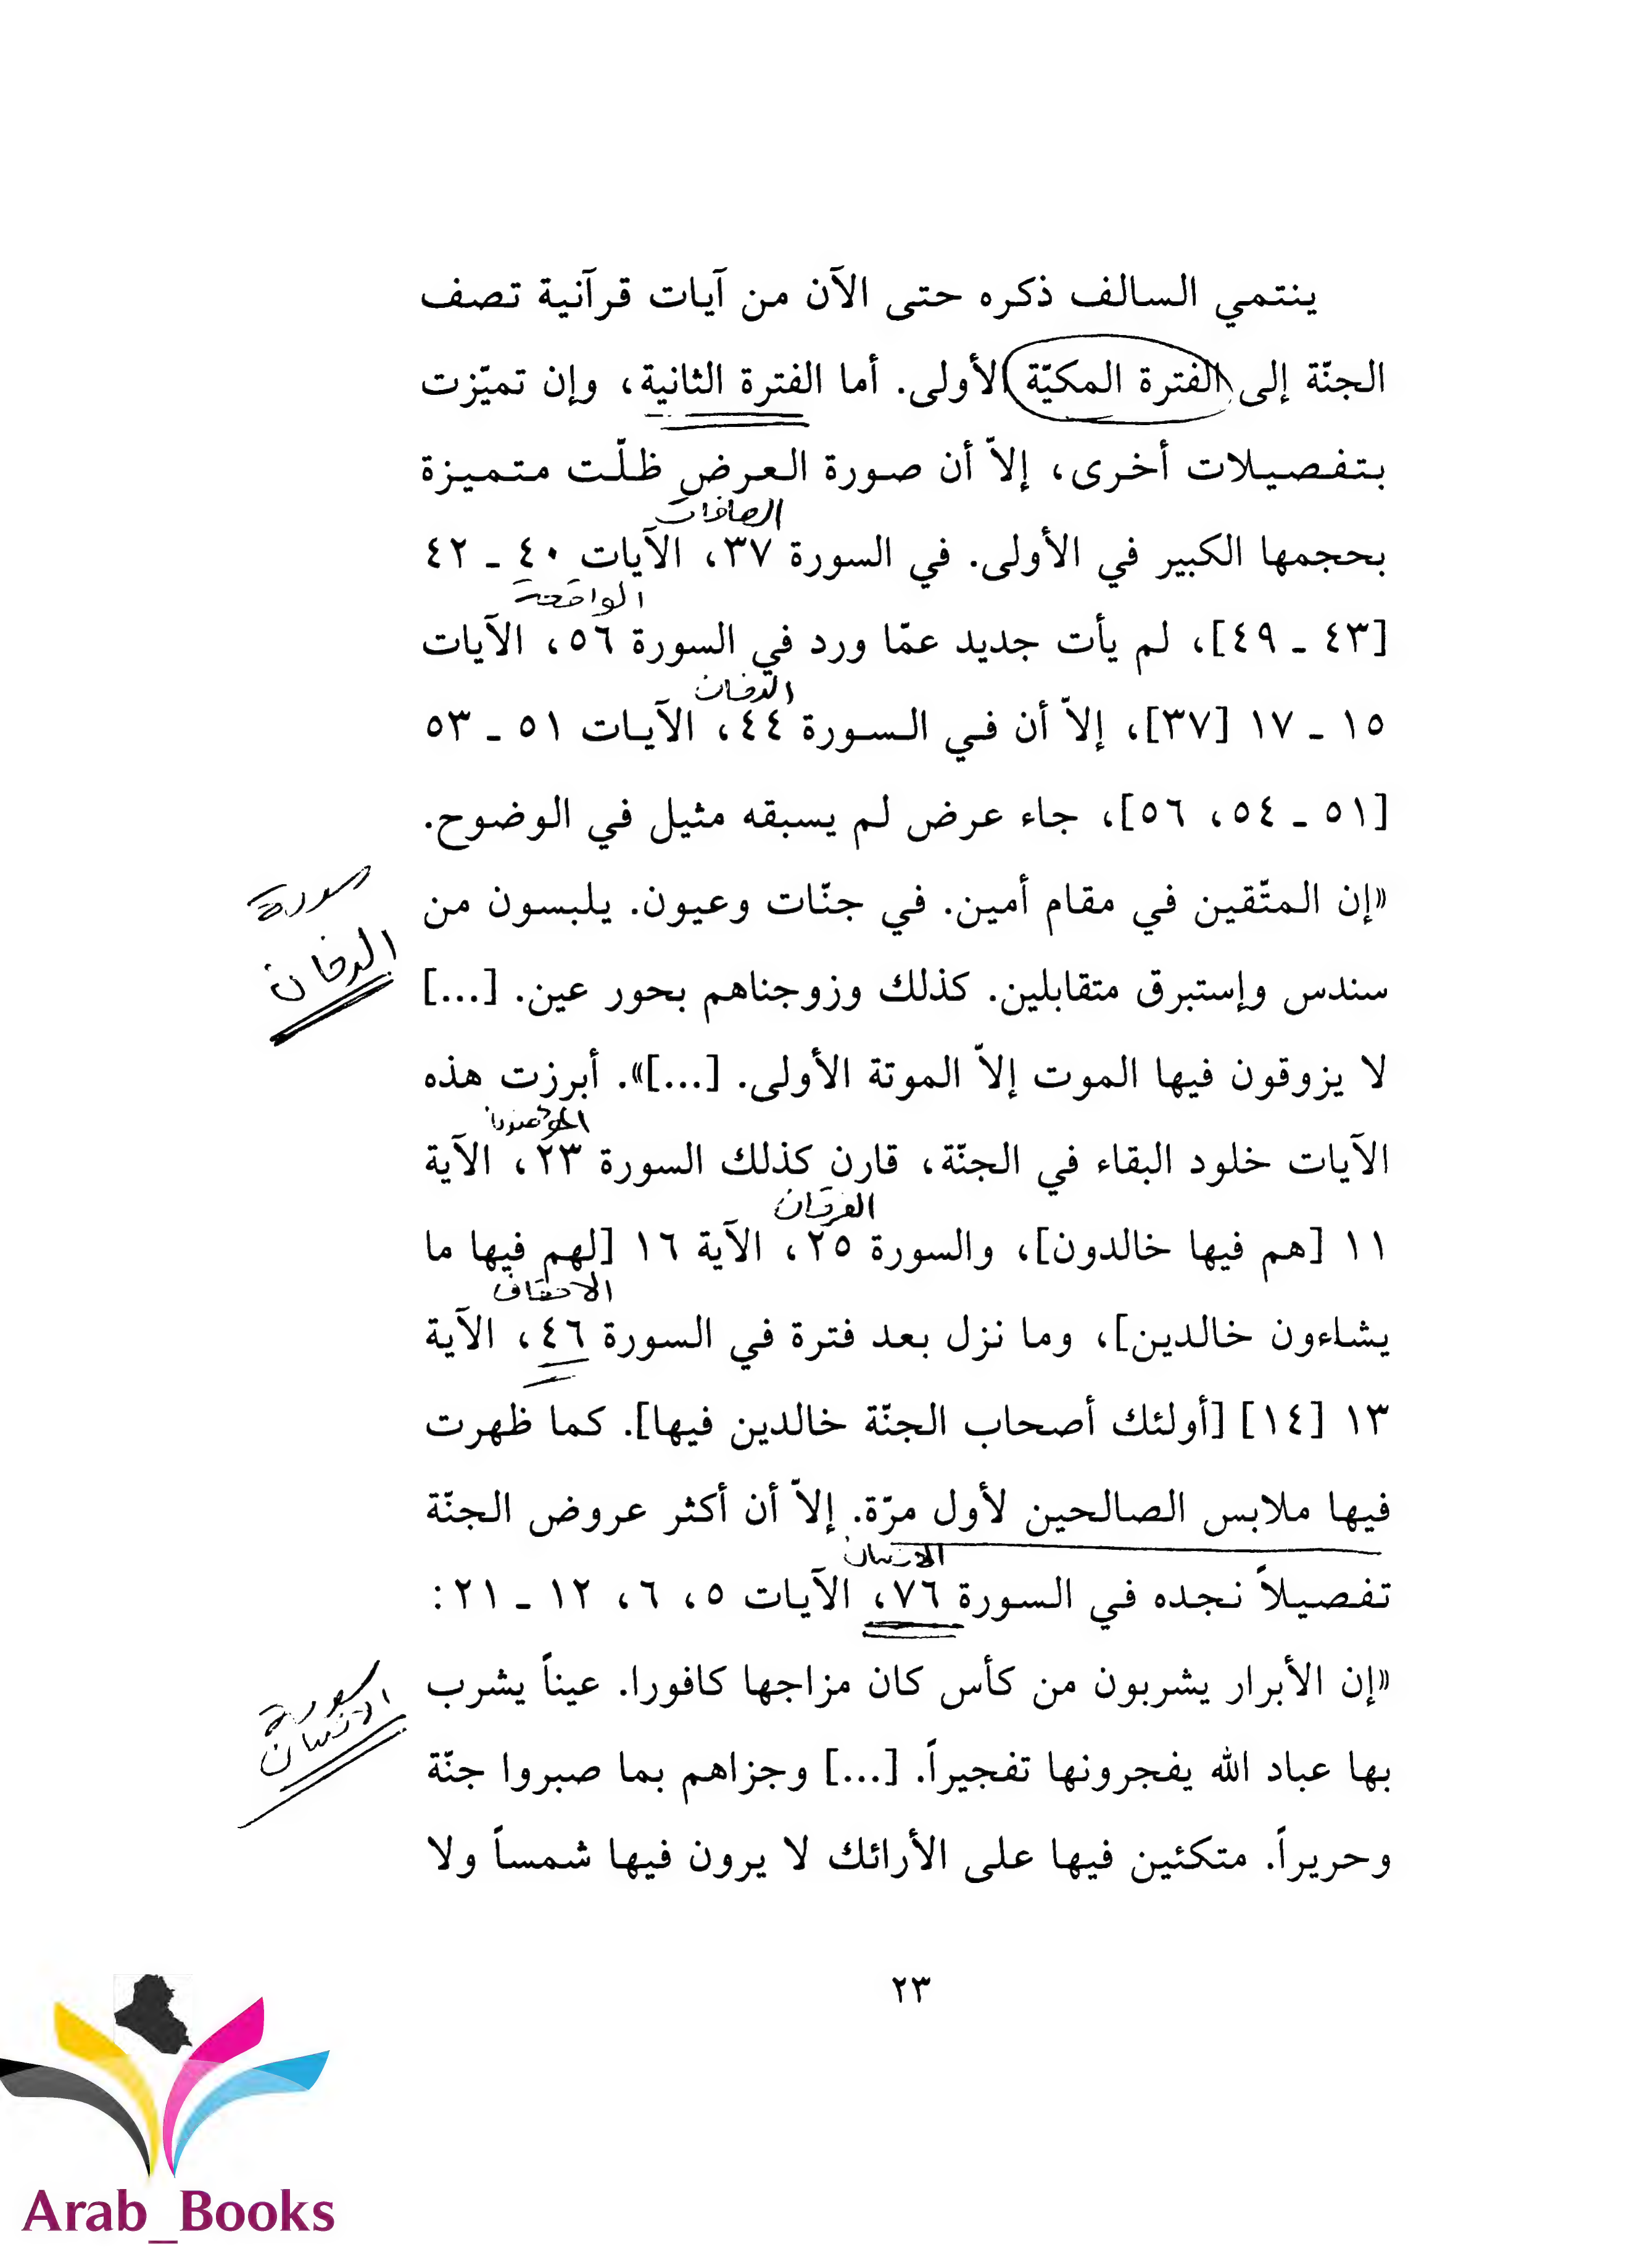 ينتمي السالف ذكره حتى الآن من آيات قرآنية تصف
الجنّة إلى الفترة المكيّة الأولى. أما الفترة الثانية، وإن تميّزت
بتفصيلات أخرى، إلاّ أن صورة العرض ظلّت متميزة
الصافات
بحجمها الكبير في الأولى. في السورة ٣٧، الآيات ٤٠ ـ ٤٢
الواقعة
[٤٣ ـ ٤٩]، لم يأت جديد عمّا ورد في السورة ٥٦، الآيات
الدخان
١٥ ـ ١٧ [٣٧]، إلاّ أن في السورة ٤٤، الآيات ٥١ ـ ٥٣
[٥١ ـ ٥٤، ٥٦]، جاء عرض لم يسبقه مثيل في الوضوح.
«إن المتّقين في مقام أمين. في جنّات وعيون. يلبسون من
سورة
الدخان
سندس وإستبرق متقابلين. كذلك وزوجناهم بحور عين. [...]
لا يزوقون فيها الموت إلاّ الموتة الأولى. [...]». أبرزت هذه
المؤمنون
الآيات خلود البقاء في الجنّة، قارن كذلك السورة ٢٣، الآية
الفرقان
١١ [هم فيها خالدون]، والسورة ٢٥، الآية ١٦ [لهم فيها ما
الاحقاف
يشاءون خالدين]، وما نزل بعد فترة في السورة ٤٦، الآية
١٣ [١٤] [أولئك أصحاب الجنّة خالدين فيها]. كما ظهرت
فيها ملابس الصالحين لأول مرّة. إلاّ أن أكثر عروض الجنّة
الانسان
تفصيلاً نجده في السورة ٧٦، الآيات ٥، ٦، ١٢ ـ ٢١:
«إن الأبرار يشربون من كأس كان مزاجها كافورا. عيناً يشرب
سورة
الانسان
بها عباد الله يفجرونها تفجيراً. [...] وجزاهم بما صبروا جنّة
وحريراً. متكئين فيها على الأرائك لا يرون فيها شمساً ولا
٢٣
Arab_Books